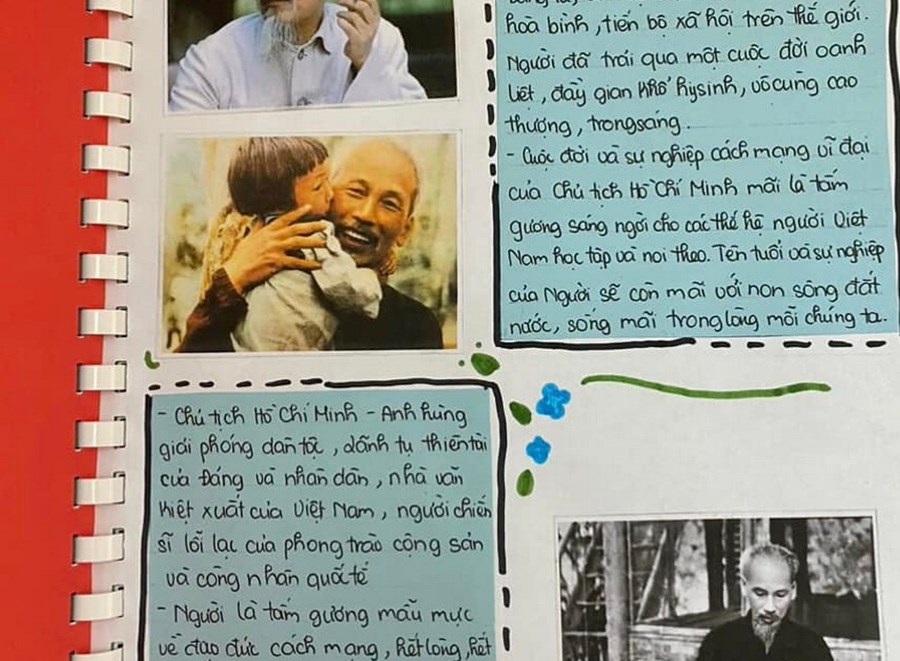 hoà bình, tiến bộ xã hội trên thế giới.
Người đã trải qua một cuộc đời oanh
liệt, đầy gian khổ hy sinh, vô cùng cao
thượng, trong sáng.
- Cuộc đời và sự nghiệp cách mạng vĩ đại
của Chủ tịch Hồ Chí Minh mãi là tấm
gương sáng ngời cho các thế hệ người Việt
Nam học tập và noi theo. Tên tuổi và sự nghiệp
của Người sẽ còn mãi với non sông đất
nước, sống mãi trong lòng mỗi chúng ta.
- Chủ tịch Hồ Chí Minh - Anh hùng
giải phóng dân tộc, lãnh tụ thiên tài
của Đảng và nhân dân, nhà văn
kiệt xuất của Việt Nam, người chiến
sĩ lỗi lạc của phong trào cộng sản
và công nhân quốc tế
- Người là tấm gương mẫu mực
về đạo đức cách mạng, hết lòng, hết